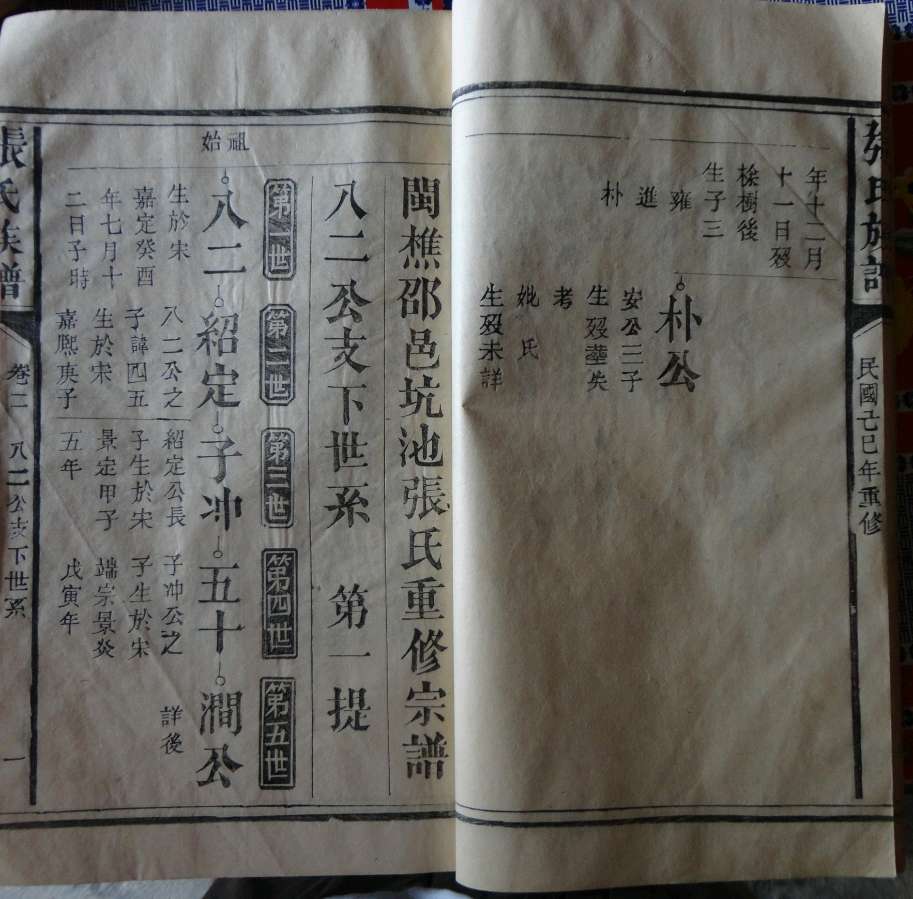 張氏族譜
民國乙巳年重修
年十二月
十一日歿
樣樹後
生子三
雍
進
朴
朴公
安公三子
生歿塟失
考
妣氏
生歿未詳
閩樵邵邑坑池張氏重修宗譜
八二公支下世系 第一提
第一世
第二世
第三世
第四世
第五世
始祖
八二
紹定
子冲
五十
澗公
生於宋
嘉定癸酉
年七月十
二日子時
八二公之
子諱四五
生於宋
嘉熙庚子
紹定公長
子生於宋
景定甲子
五年
子冲公之
子生於宋
端宗景炎
戊寅年
詳後
張氏族譜
卷二
八二公支下世系
一